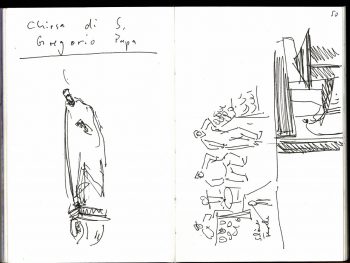 Chiesa di S.
Gregorio Papa
50